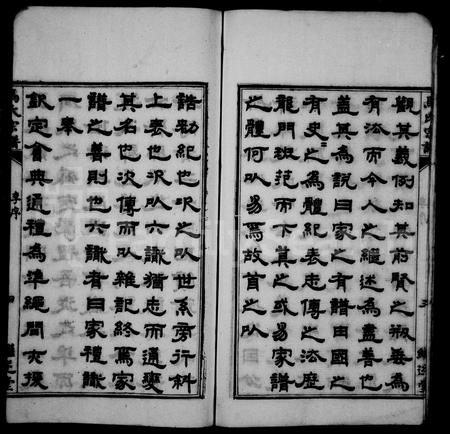 觀其義例知其前賢之垂為
有法而今人之繼述為盡善也
蓋其為說曰家之有譜由國之
有史之為體紀表志傳之法歷
龍門班范而下莫之或易家譜
之體何以易焉故首之以
誥勅紀也次之以世系旁行斜
上表也次以六識猶志而通變
其名也次傳而以雜記終焉家
譜之善則也六識者曰家禮識
一奉
欽定會典通禮為準繩間亦復
序
四